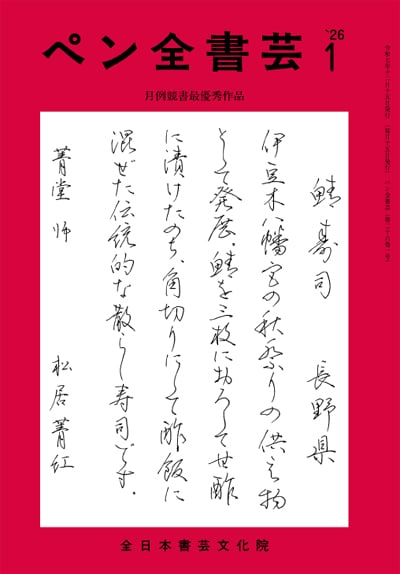 ペン全書芸
'26
1
月例競書最優秀作品
鯖寿司 長野県
伊豆木八幡宮の秋祭りの供え物
として発展、鯖を三枚におろして甘酢
に漬けたのち、角切りにして酢飯に
混ぜた伝統的な散らし寿司です。
菁堂 師 松居菁紅
全日本書芸文化院